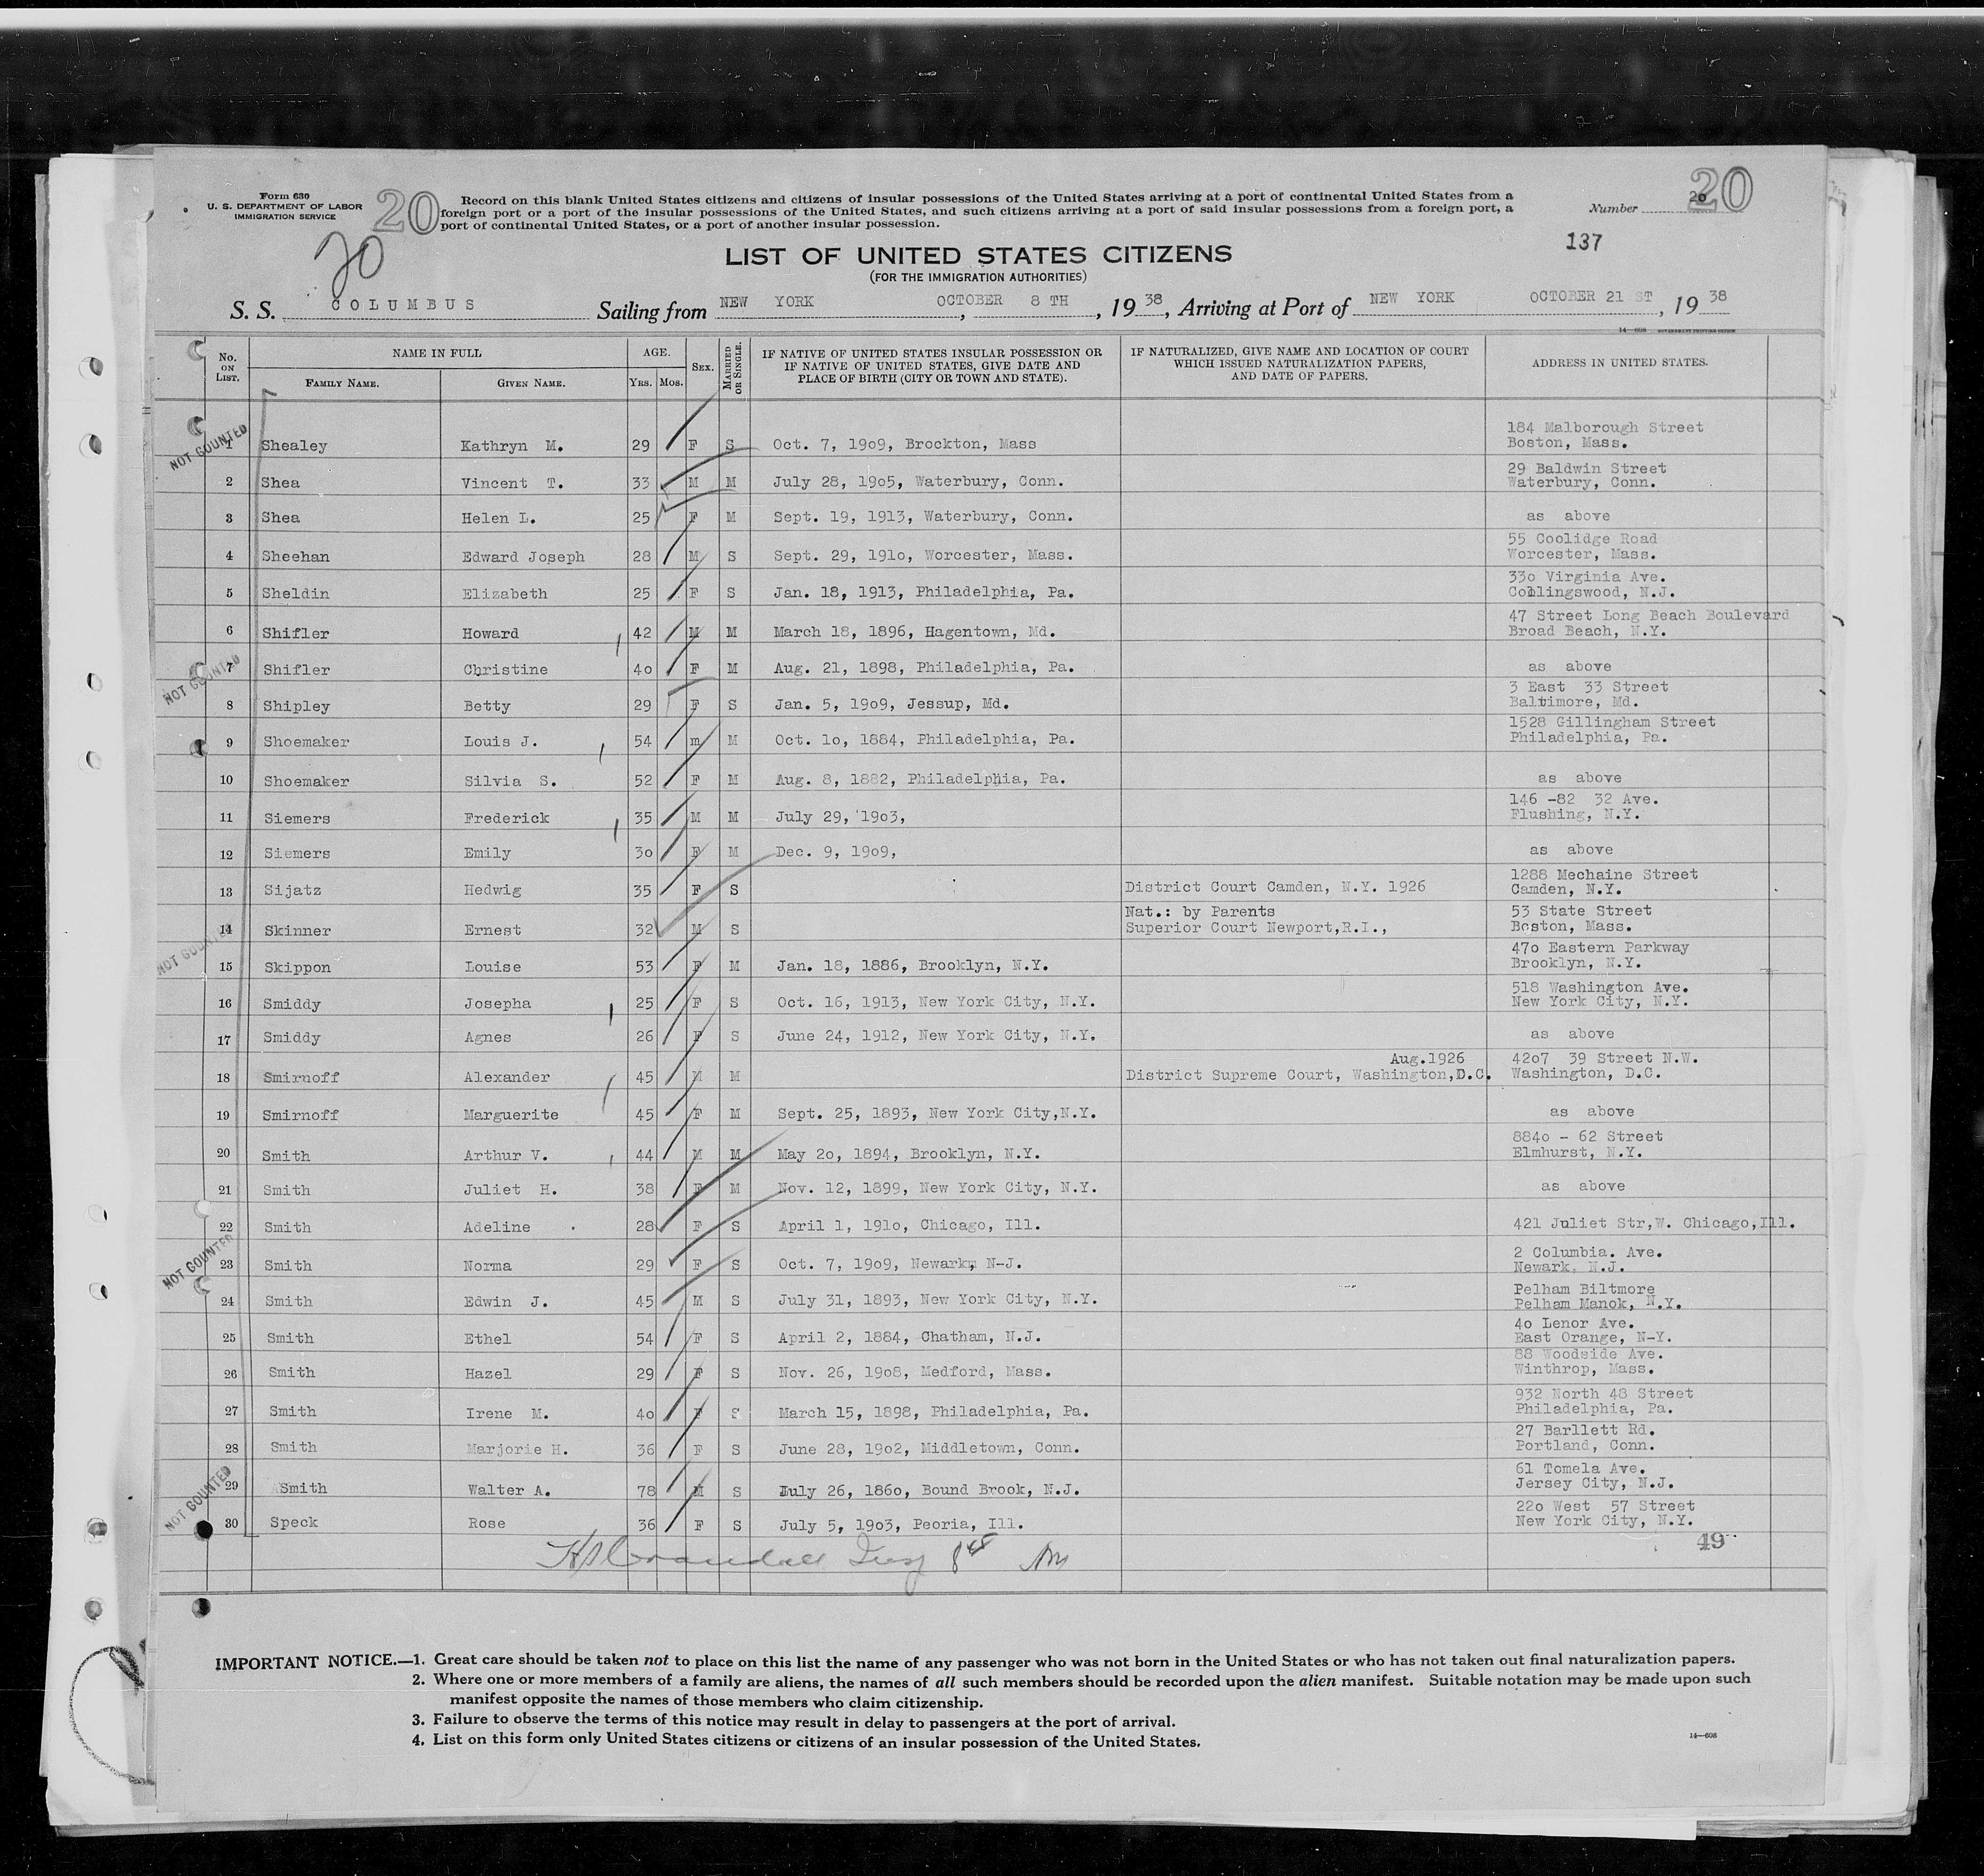 Form 630
U. S. DEPARTMENT OF LABOR
IMMIGRATION SERVICE
20
20
Record on this blank United States citizens and citizens of insular possessions of the United States arriving at a port of continental United States from a
foreign port or a port of the insular possessions of the United States, and such citizens arriving at a port of said insular possessions from a foreign port, a
port of continental United States, or a port of another insular possession.
Number 20
20
137
LIST OF UNITED STATES CITIZENS
(FOR THE IMMIGRATION AUTHORITIES)
S. S. COLUMBUS Sailing from NEW YORK, OCTOBER 8 TH, 19 38, Arriving at Port of NEW YORK OCTOBER 21 ST, 19 38
14—608 GOVERNMENT PRINTING OFFICE
No. ON LIST. NAME IN FULL FAMILY NAME. GIVEN NAME. AGE. YRS. MOS. SEX. MARRIED OR SINGLE. IF NATIVE OF UNITED STATES INSULAR POSSESSION OR IF NATIVE OF UNITED STATES, GIVE DATE AND PLACE OF BIRTH (CITY OR TOWN AND STATE). IF NATURALIZED, GIVE NAME AND LOCATION OF COURT WHICH ISSUED NATURALIZATION PAPERS, AND DATE OF PAPERS. ADDRESS IN UNITED STATES.
184 Malborough Street
NOT COUNTED 1 Shealey Kathryn M. 29 F S Oct. 7, 19o9, Brockton, Mass Boston, Mass.
29 Baldwin Street
2 Shea Vincent T. 33 M M July 28, 19o5, Waterbury, Conn. Waterbury, Conn.
3 Shea Helen L. 25 F M Sept. 19, 1913, Waterbury, Conn. as above
55 Coolidge Road
4 Sheehan Edward Joseph 28 M S Sept. 29, 191o, Worcester, Mass. Worcester, Mass.
33o Virginia Ave.
5 Sheldin Elizabeth 25 F S Jan. 18, 1913, Philadelphia, Pa. Collingswood, N.J.
47 Street Long Beach Boulevard
6 Shifler Howard 42 M M March 18, 1896, Hagentown, Md. Broad Beach, N.Y.
NOT COUNTED 7 Shifler Christine 4o F M Aug. 21, 1898, Philadelphia, Pa. as above
3 East 33 Street
8 Shipley Betty 29 F S Jan. 5, 19o9, Jessup, Md. Baltimore, Md.
1528 Gillingham Street
9 Shoemaker Louis J. 54 m M Oct. 1o, 1884, Philadelphia, Pa. Philadelphia, Pa.
10 Shoemaker Silvia S. 52 F M Aug. 8, 1882, Philadelphia, Pa. as above
146 -82 32 Ave.
11 Siemers Frederick 35 M M July 29, '19o3, Flushing, N.Y.
12 Siemers Emily 3o F M Dec. 9, 19o9, as above
1288 Mechaine Street
13 Sijatz Hedwig 35 F S District Court Camden, N.Y. 1926 Camden, N.Y.
Nat.: by Parents 53 State Street
NOT COUNTED 14 Skinner Ernest 32 M S Superior Court Newport,R.I., Boston, Mass.
47o Eastern Parkway
15 Skippon Louise 53 F M Jan. 18, 1886, Brooklyn, N.Y. Brooklyn, N.Y.
518 Washington Ave.
16 Smiddy Josepha 25 F S Oct. 16, 1913, New York City, N.Y. New York City, N.Y.
17 Smiddy Agnes 26 F S June 24, 1912, New York City, N.Y. as above
Aug.1926 42o7 39 Street N.W.
18 Smirnoff Alexander 45 M M District Supreme Court, Washington,D.C. Washington, D.C.
19 Smirnoff Marguerite 45 F M Sept. 25, 1893, New York City,N.Y. as above
884o - 62 Street
20 Smith Arthur V. 44 M M May 2o, 1894, Brooklyn, N.Y. Elmhurst, N.Y.
21 Smith Juliet H. 38 F M Nov. 12, 1899, New York City, N.Y. as above
22 Smith Adeline 28 F S April 1, 191o, Chicago, Ill. 421 Juliet Str,W. Chicago,Ill.
2 Columbia. Ave.
NOT COUNTED 23 Smith Norma 29 F S Oct. 7, 19o9, Newark, N-J. Newark, N.J.
Pelham Biltmore
24 Smith Edwin J. 45 M S July 31, 1893, New York City, N.Y. Pelham Manok, N.Y.
4o Lenor Ave.
25 Smith Ethel 54 F S April 2, 1884, Chatham, N.J. East Orange, N-Y.
88 Woodside Ave.
26 Smith Hazel 29 F S Nov. 26, 19o8, Medford, Mass. Winthrop, Mass.
932 North 48 Street
27 Smith Irene M. 4o F S March 15, 1898, Philadelphia, Pa. Philadelphia, Pa.
27 Barllett Rd.
28 Smith Marjorie H. 36 F S June 28, 19o2, Middletown, Conn. Portland, Conn.
61 Tomela Ave.
NOT COUNTED 29 Smith Walter A. 78 M S July 26, 186o, Bound Brook, N.J. Jersey City, N.J.
22o West 57 Street
30 Speck Rose 36 F S July 5, 19o3, Peoria, Ill. New York City, N.Y.
49
IMPORTANT NOTICE.—1. Great care should be taken not to place on this list the name of any passenger who was not born in the United States or who has not taken out final naturalization papers.
2. Where one or more members of a family are aliens, the names of all such members should be recorded upon the alien manifest. Suitable notation may be made upon such
manifest opposite the names of those members who claim citizenship.
3. Failure to observe the terms of this notice may result in delay to passengers at the port of arrival.
4. List on this form only United States citizens or citizens of an insular possession of the United States.
14—608